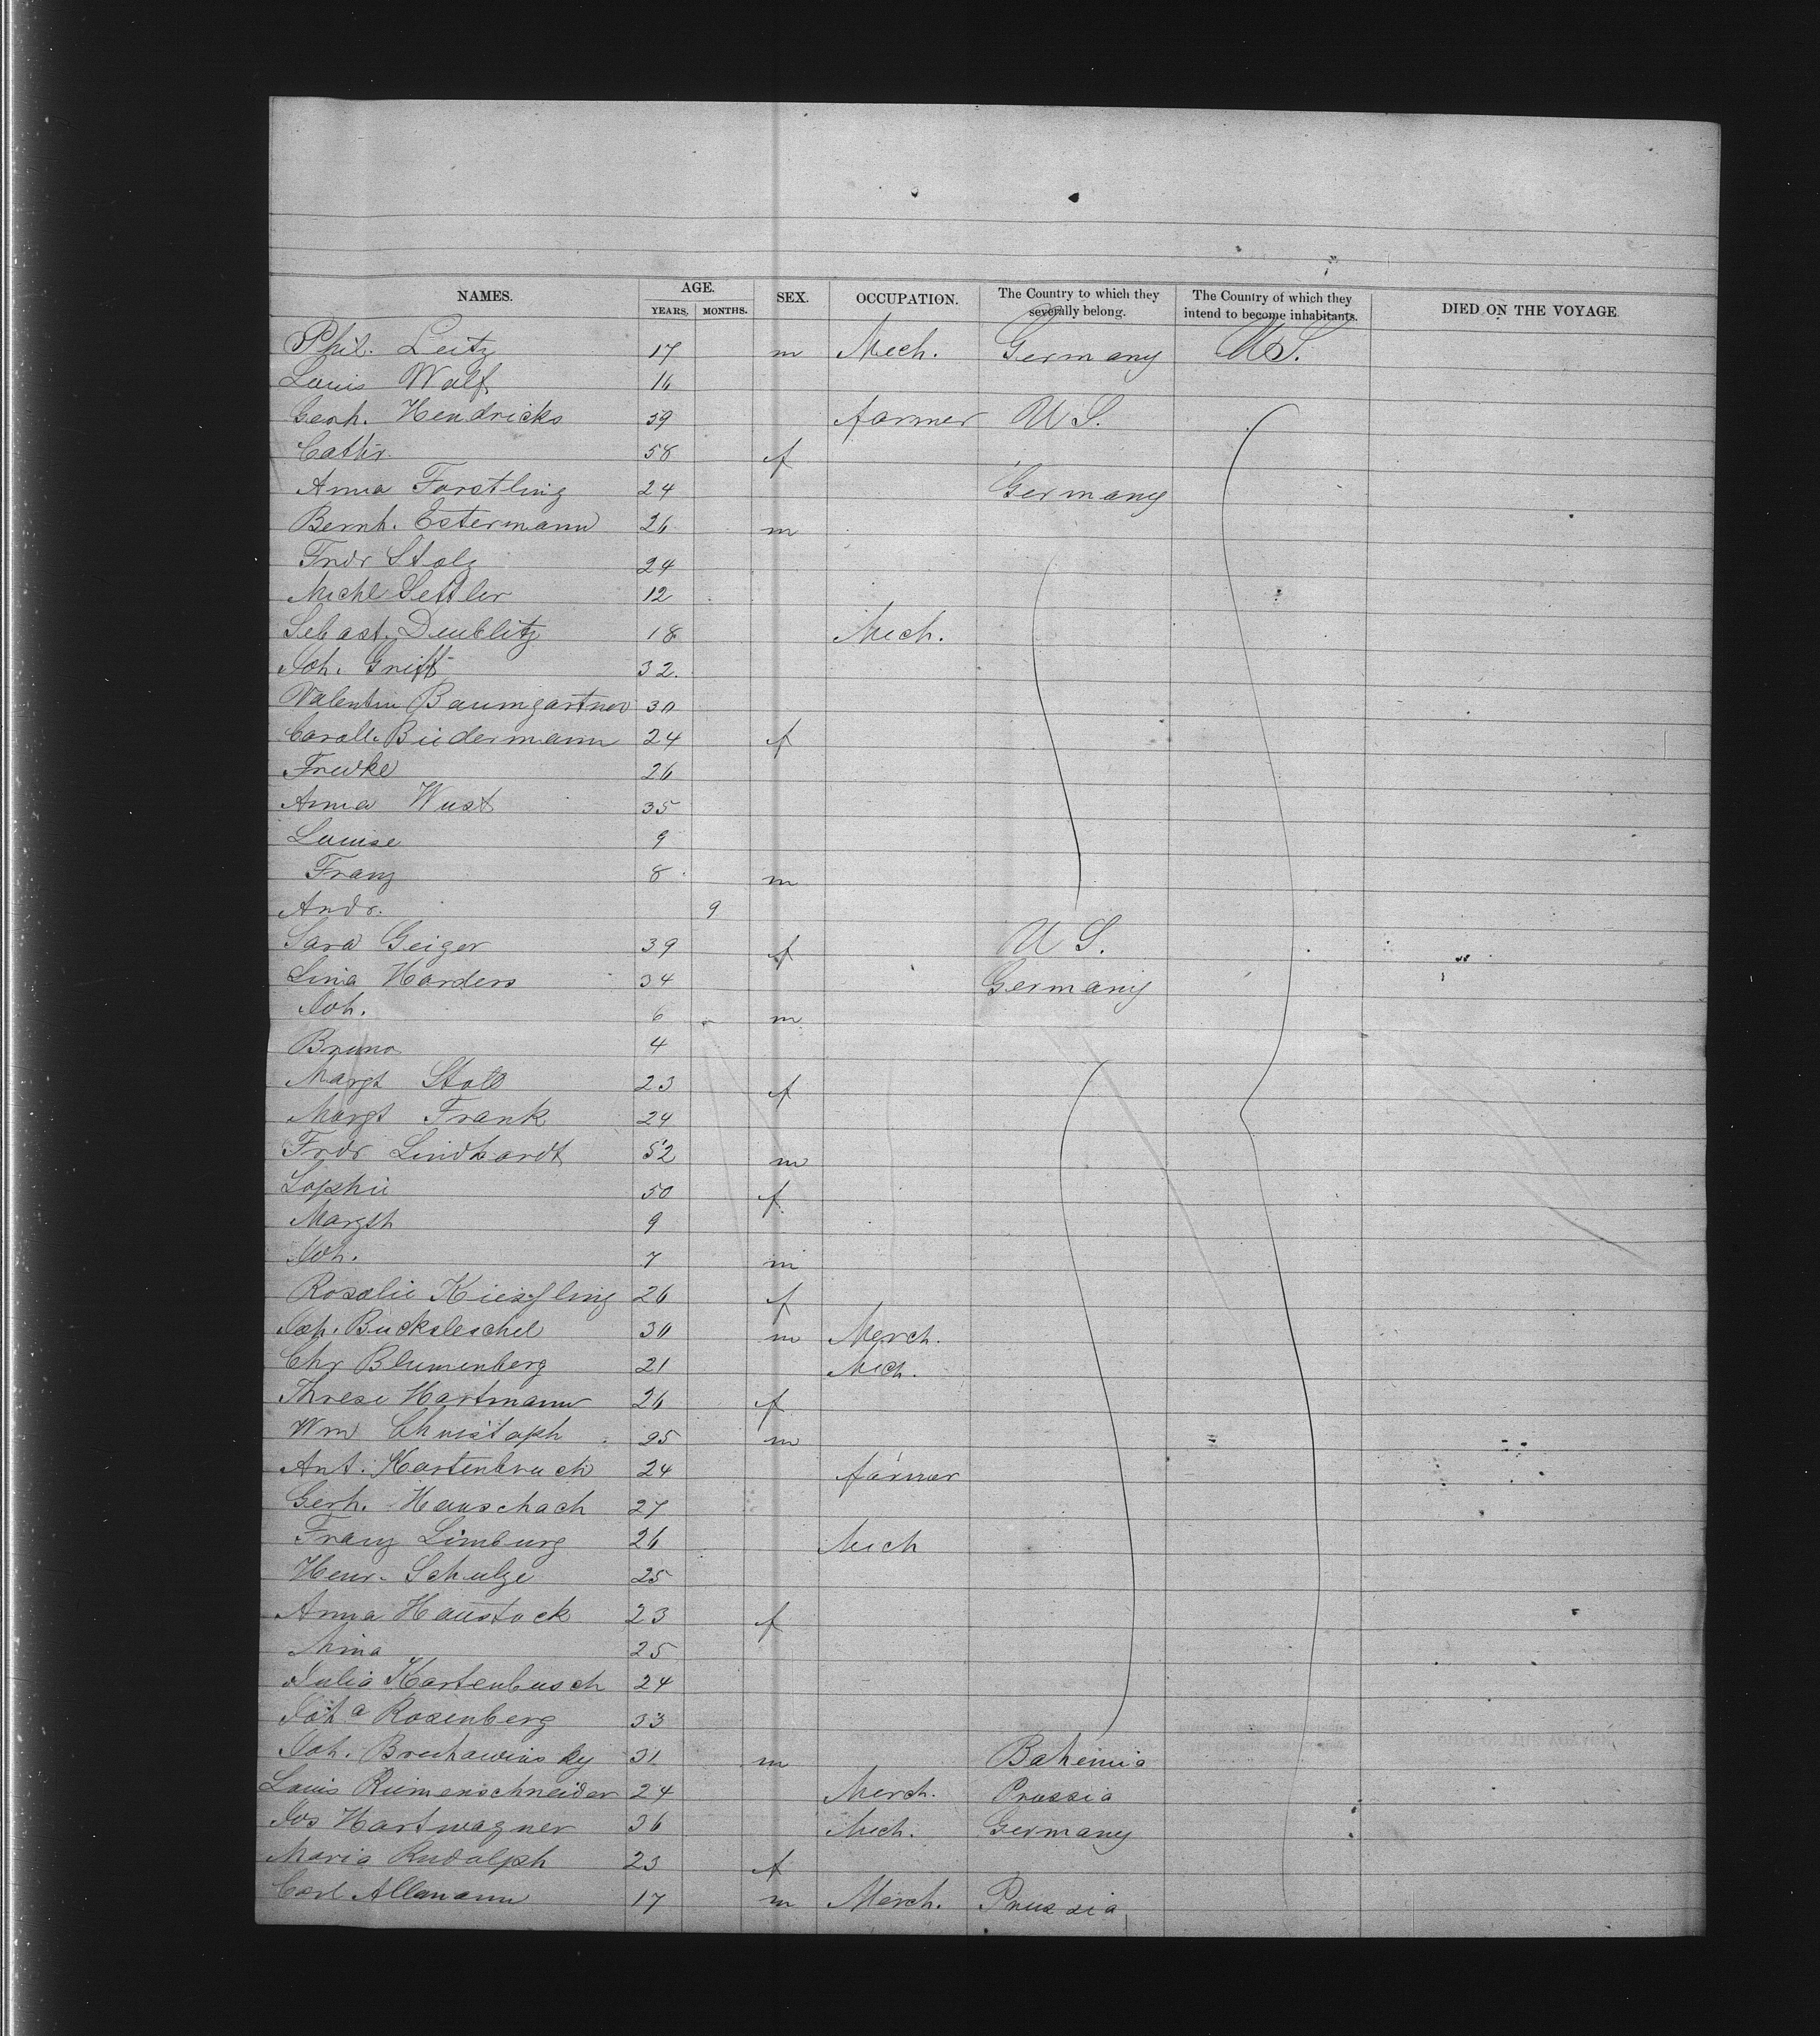 NAMES. AGE. YEARS. MONTHS. SEX. OCCUPATION. The Country to which they severally belong. The Country of which they intend to become inhabitants. DIED ON THE VOYAGE
Phil. Leitz 17 m Mech. Germany U.S.
Louis Wolf 16
Gerh. Hendricks 39 farmer U.S.
Cathr. 58 f
Anna Forstling 24 Germany
Bernh. Estermann 26 m
Fridr Stolz 24
Michl Settler 12
Sebast. Deublitz 18 Mech.
Joh. Greift 32.
Valentin Baumgartner 30
Caroll. Biedermann 24 f
26
Anna Wust 35
Louise 9
Franz 8 m
Andr. 9
Sara Geiger 39 f U S.
Lina Harders 34 Germany
Joh. 6 m
Bruno 4
Margt Stoll 23 f
Margt Frank 24
Frdr Lindhardt 52 m
Sophie 50 f
Margth 9
Joh. 7 m
Rosalie Kiessling 26 f
Joh. Buckleschel 30 m Merch.
Chr Blumenberg 21 Mech.
Threse Hartmann 26 f
Wm Christoph 25 m
Ant. Kartenbruch 24 farmer
Gerh. Hauschach 27
Franz Limburg 26 Mech
Henr. Schulze 25
Anna Haustock 23 f
Mina 25
Julia Kartenbusch 24
Joha Rosenberg 33
Joh. 31 m Bohemia
Louis Riemenschneider 24 Merch. Prussia
Jos Hartwagner 36 Mech. Germany
Maria Rudolph 23 f
Carl Allmann 17 m Merch. Prussia